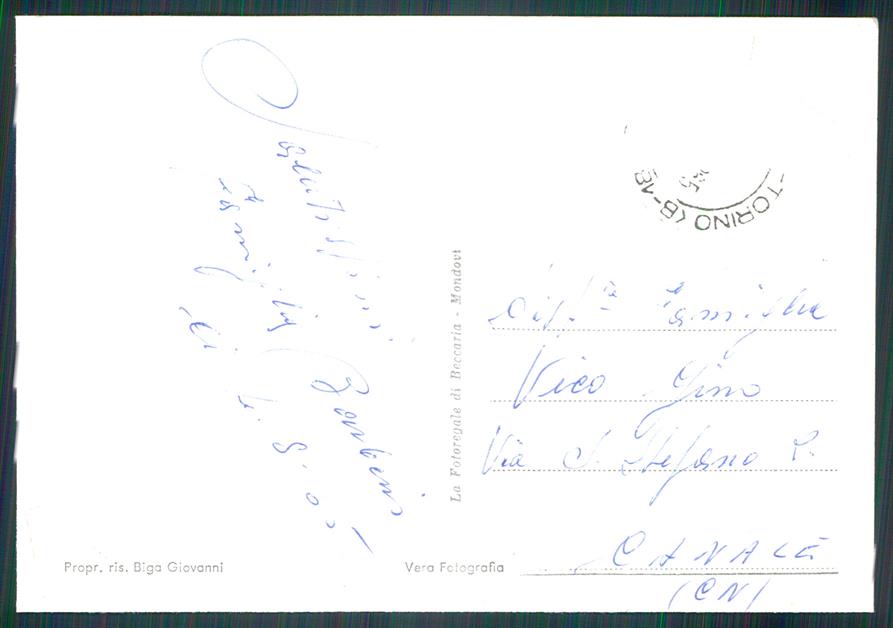 Salutissimi
Famiglia
li
La Fotoregale di Beccaria - Mondovì
TORINO (B-18
Famiglia
Vico Gino
Via S. Stefano R.
CANALE
(CN)
Propr. ris. Biga Giovanni
Vera Fotografia